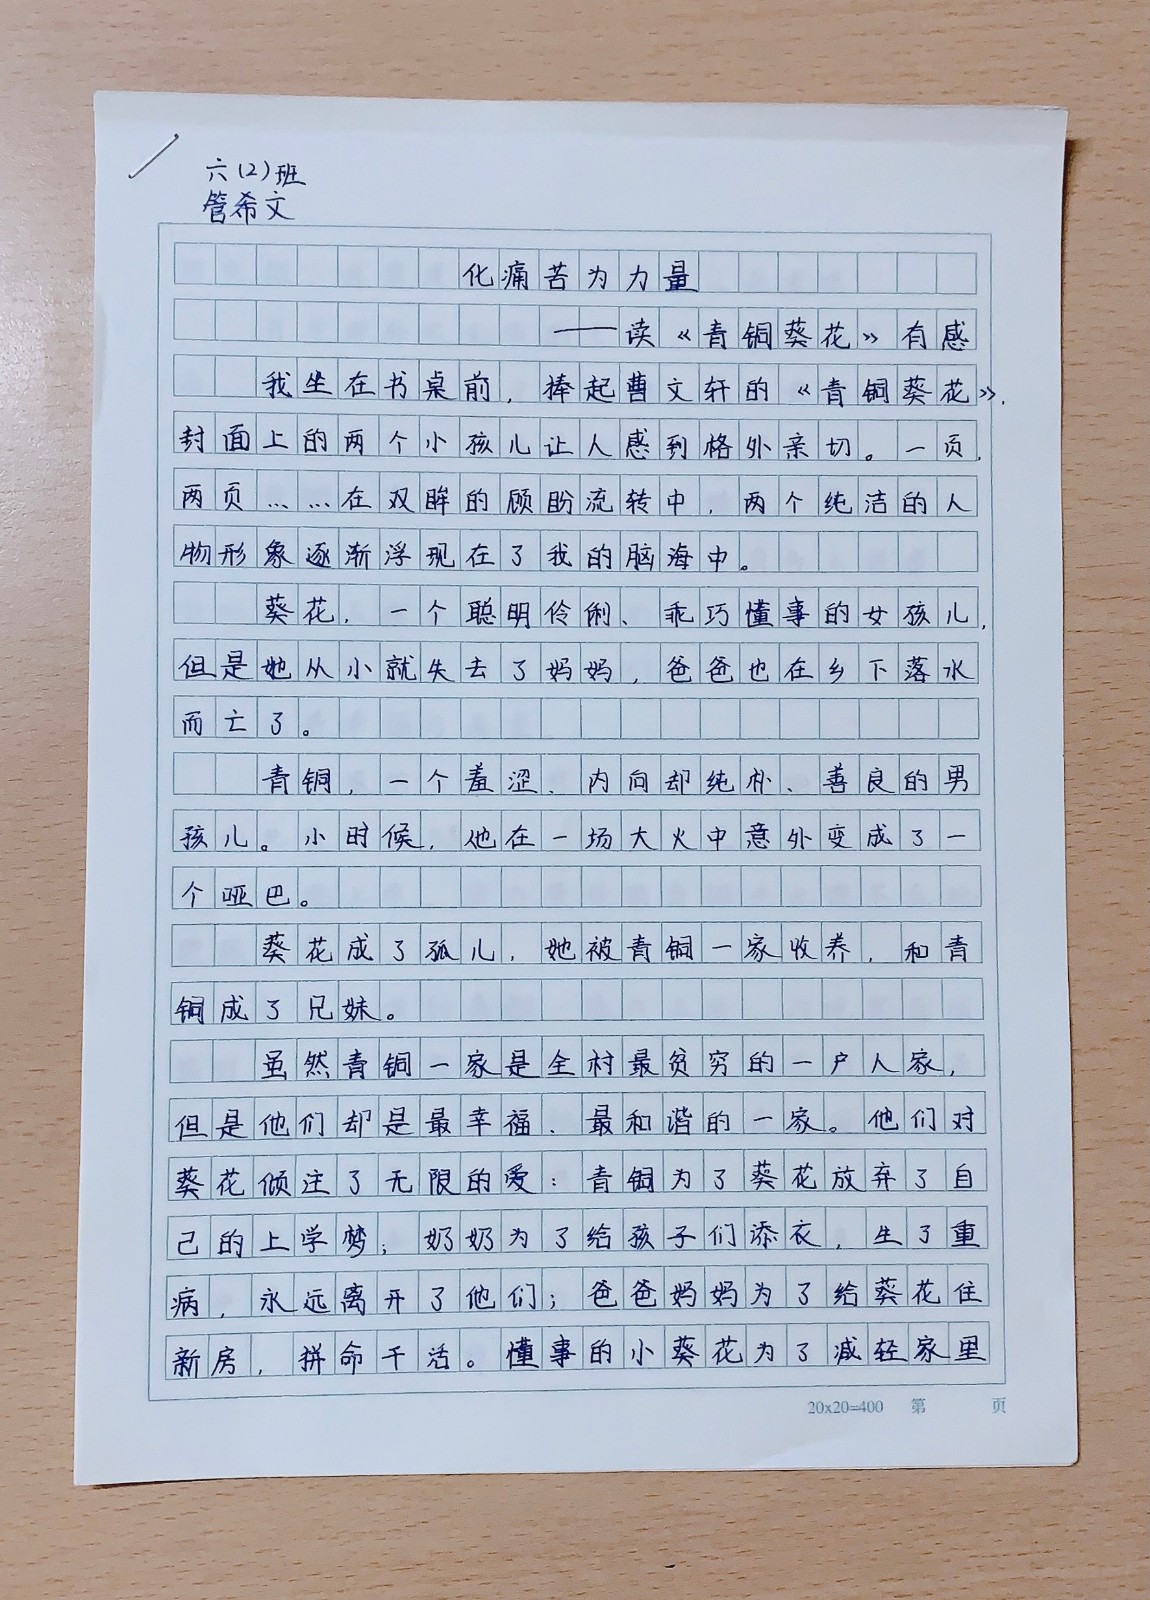 六(2)班
管希文
化痛苦为力量
——读《青铜葵花》有感
我坐在书桌前，捧起曹文轩的《青铜葵花》，
封面上的两个小孩儿让人感到格外亲切。一页，
两页……在双眸的顾盼流转中，两个纯洁的人
物形象逐渐浮现在了我的脑海中。
葵花，一个聪明伶俐、乖巧懂事的女孩儿，
但是她从小就失去了妈妈，爸爸也在乡下落水
而亡了。
青铜，一个羞涩、内向却纯朴、善良的男
孩儿。小时候，他在一场大火中意外变成了一
个哑巴。
葵花成了孤儿，她被青铜一家收养，和青
铜成了兄妹。
虽然青铜一家是全村最贫穷的一户人家，
但是他们却是最幸福、最和谐的一家。他们对
葵花倾注了无限的爱：青铜为了葵花放弃了自
己的上学梦；奶奶为了给孩子们添衣，生了重
病，永远离开了他们；爸爸妈妈为了给葵花住
新房，拼命干活。懂事的小葵花为了减轻家里
20x20=400 第 页